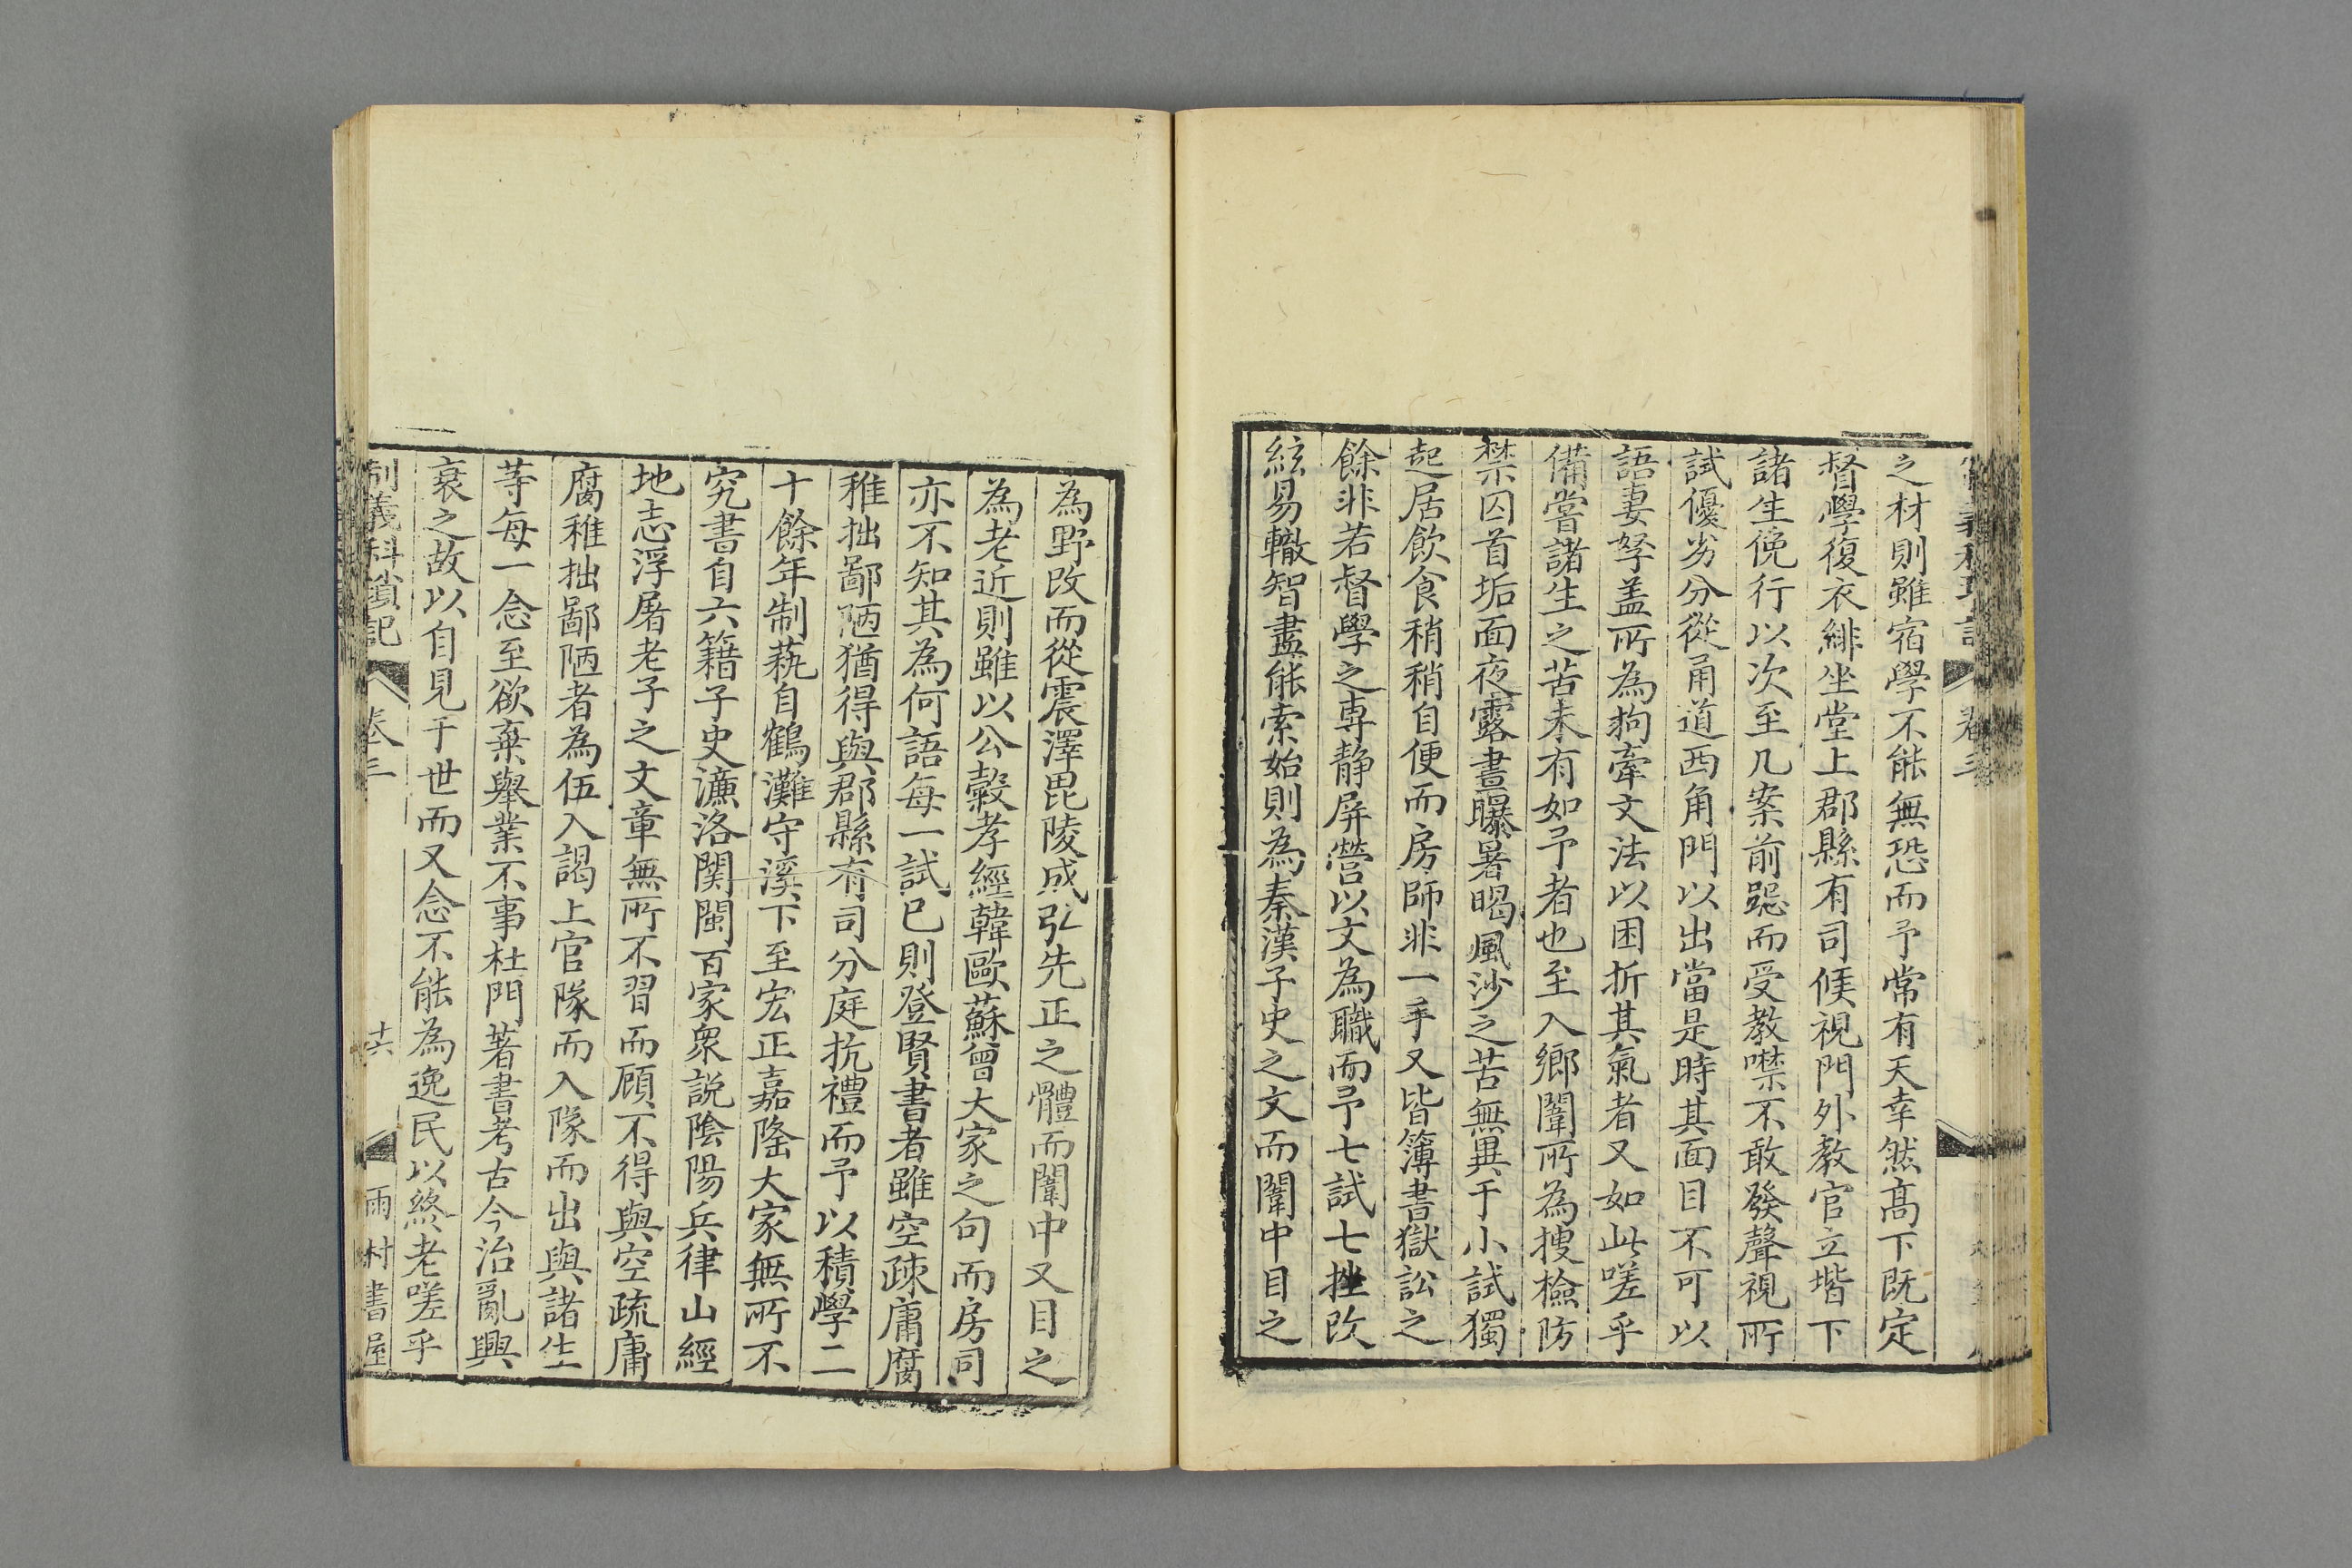 之材則雖宿學不能無恐而予常有天幸然高下既定
督學復衣緋坐堂上郡縣有司候視門外教官立堦下
諸生俛行以次至几案前跽而受教噤不敢發聲視所
試優劣分從甬道西角門以出當是時其面目不可以
語妻孥盖所為狥牽文法以困折其氣者又如此嗟乎
備嘗諸生之苦未有如予者也至入鄉闈所為搜檢防
禁囚首垢面夜露晝曝暑暍風沙之苦無異于小試獨
起居飲食稍稍自便而房師非一手又皆簿書獄訟之
餘非若督學之專靜屏營以文為職而予七試七挫改
絃易轍智盡能索始則為秦漢子史之文而闈中目之
為野改而從震澤毘陵成弘先正之體而闈中又目之
為老近則雖以公穀孝經韓歐蘇曾大家之句而房司
亦不知其為何語每一試已則登賢書者雖空疎庸腐
稚拙鄙陋猶得與郡縣有司分庭抗禮而予以積學二
十餘年制藝自鶴灘守溪下至宏正嘉隆大家無所不
究書自六籍子史濂洛関閩百家衆説陰陽兵律山經
地志浮屠老子之文章無所不習而顧不得與空疏庸
腐稚拙鄙陋者為伍入謁上官隊而入隊而出與諸生
等每一念至欲棄舉業不事杜門著書考古今治亂興
衰之故以自見于世而又念不能為逸民以終老嗟乎
制義科瑣記 卷三 十六 雨村書屋